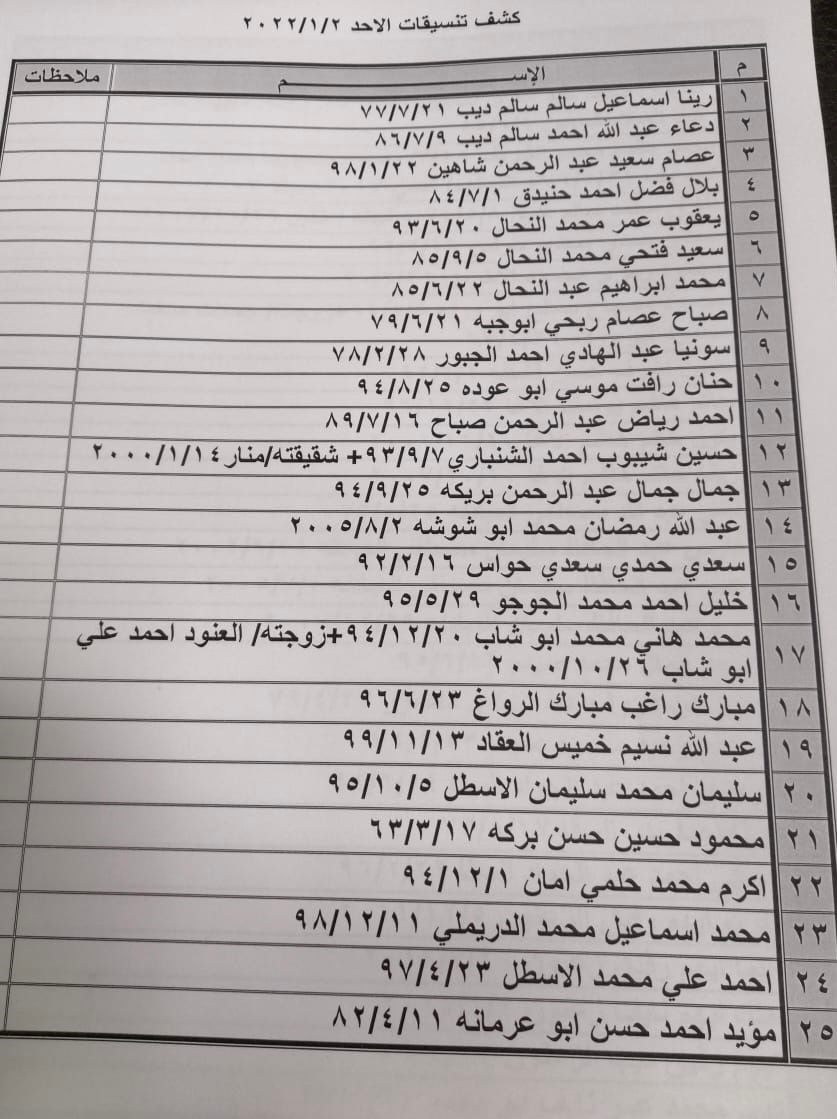 كشف تنسيقات الاحد ٢٠٢٢/١/٢
م الإســـــــــــم ملاحظات
١ رينا اسماعيل سالم سالم ديب ٧٧/٧/٢١
٢ دعاء عبد الله احمد سالم ديب ٨٦/٧/٩
٣ عصام سعيد عبد الرحمن شاهين ٩٨/١/٢٢
٤ بلال فضل احمد حنيدق ٨٤/٧/١
٥ يعقوب عمر محمد النحال ٩٣/٦/٢٠
٦ سعيد فتحي محمد النحال ٨٥/٩/٥
٧ محمد ابراهيم عبد النحال ٨٥/٦/٢٢
٨ صباح عصام ربحي ابوجبه ٧٩/٦/٢١
٩ سونيا عبد الهادي احمد الجبور ٧٨/٢/٢٨
١٠ حنان رافت موسي ابو عوده ٩٤/٨/٢٥
١١ احمد رياض عبد الرحمن صباح ٨٩/٧/١٦
١٢ حسين شيبوب احمد الشنباري ٩٣/٩/٧+ شقيقته/منار ٢٠٠٠/١/١٤
١٣ جمال جمال عبد الرحمن بريكه ٩٤/٩/٢٥
١٤ عبد الله رمضان محمد ابو شوشه ٢٠٠٥/٨/٢
١٥ سعدي حمدي سعدي حواس ٩٢/٢/١٦
١٦ خليل احمد محمد الجوجو ٩٥/٥/٢٩
١٧ محمد هاني محمد ابو شاب ٩٤/١٢/٢٠+زوجته/ العنود احمد علي
ابو شاب ٢٠٠٠/١٠/٢٦
١٨ مبارك راغب مبارك الرواغ ٩٦/٦/٢٣
١٩ عبد الله نسيم خميس العقاد ٩٩/١١/١٣
٢٠ سليمان محمد سليمان الاسطل ٩٥/١٠/٥
٢١ محمود حسين حسن بركه ٦٣/٣/١٧
٢٢ اكرم محمد حلمي امان ٩٤/١٢/١
٢٣ محمد اسماعيل محمد الدريملي ٩٨/١٢/١١
٢٤ احمد علي محمد الاسطل ٩٧/٤/٢٣
٢٥ مؤيد احمد حسن ابو عرمانه ٨٢/٤/١١